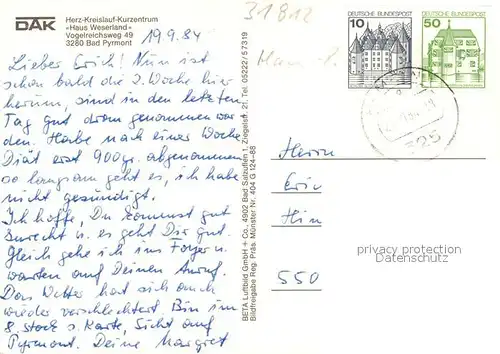 DAK
Herz-Kreislauf-Kurzentrum
»Haus Weserland«
Vogelreichsweg 49
3280 Bad Pyrmont
19.9.84
Lieber Erich! Nun ist
schon bald die 2. Woche hier
herum, sind in den letzten
Tag gut dran genommen wor
den. Habe nach einer Woche
Diät erst 900 gr. abgenommen
so langsam geht es, ich habe
nicht gesündigt.
Ich hoffe, Du kommst gut
zurecht u. es geht Dir gut.
Gleich gehe ich ins Foyer u.
warten auf Deinen Anruf.
Das Wetter hat sich auch
wieder verschlechtert. Bin im
8. Stock s. Karte, Sicht auf
Pyrmont. Deine Margret
BETA Luftbild GmbH + Co., 4902 Bad Salzuflen 1, Ziegelstr. 21, Tel. 05222/57319
Bildfreigabe Reg. Präs. Münster Nr. 404 G 124-88
31812
DEUTSCHE BUNDESPOST
10
DEUTSCHE BUNDESPOST
50
325
Herrn
Eric
Hein
550
privacy protection
Datenschutz